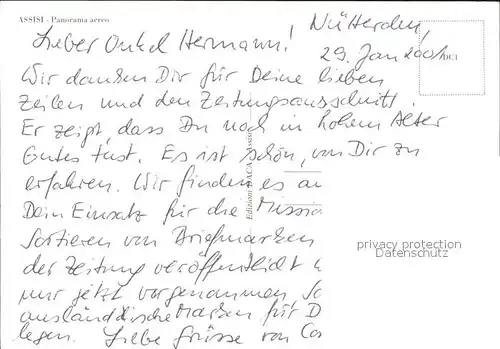 ASSISI - Panorama aereo
Nütterden,
29. Jan 2001
Lieber Onkel Hermann!
Wir danken Dir für Deine lieben
Zeilen und den Zeitungsausschnitt.
Er zeigt, dass Du noch in hohem Alter
Gutes tust. Es ist schön, von Dir zu
erfahren. Wir finden es
Dein Einsatz für die
Sortieren von Briefmarken
der Zeitung veröffentlicht
nur jetzt vorgenommen,
ausländische Marken für
legen. Liebe Grüsse von
Edizioni DACA Assisi
privacy protection
Datenschutz